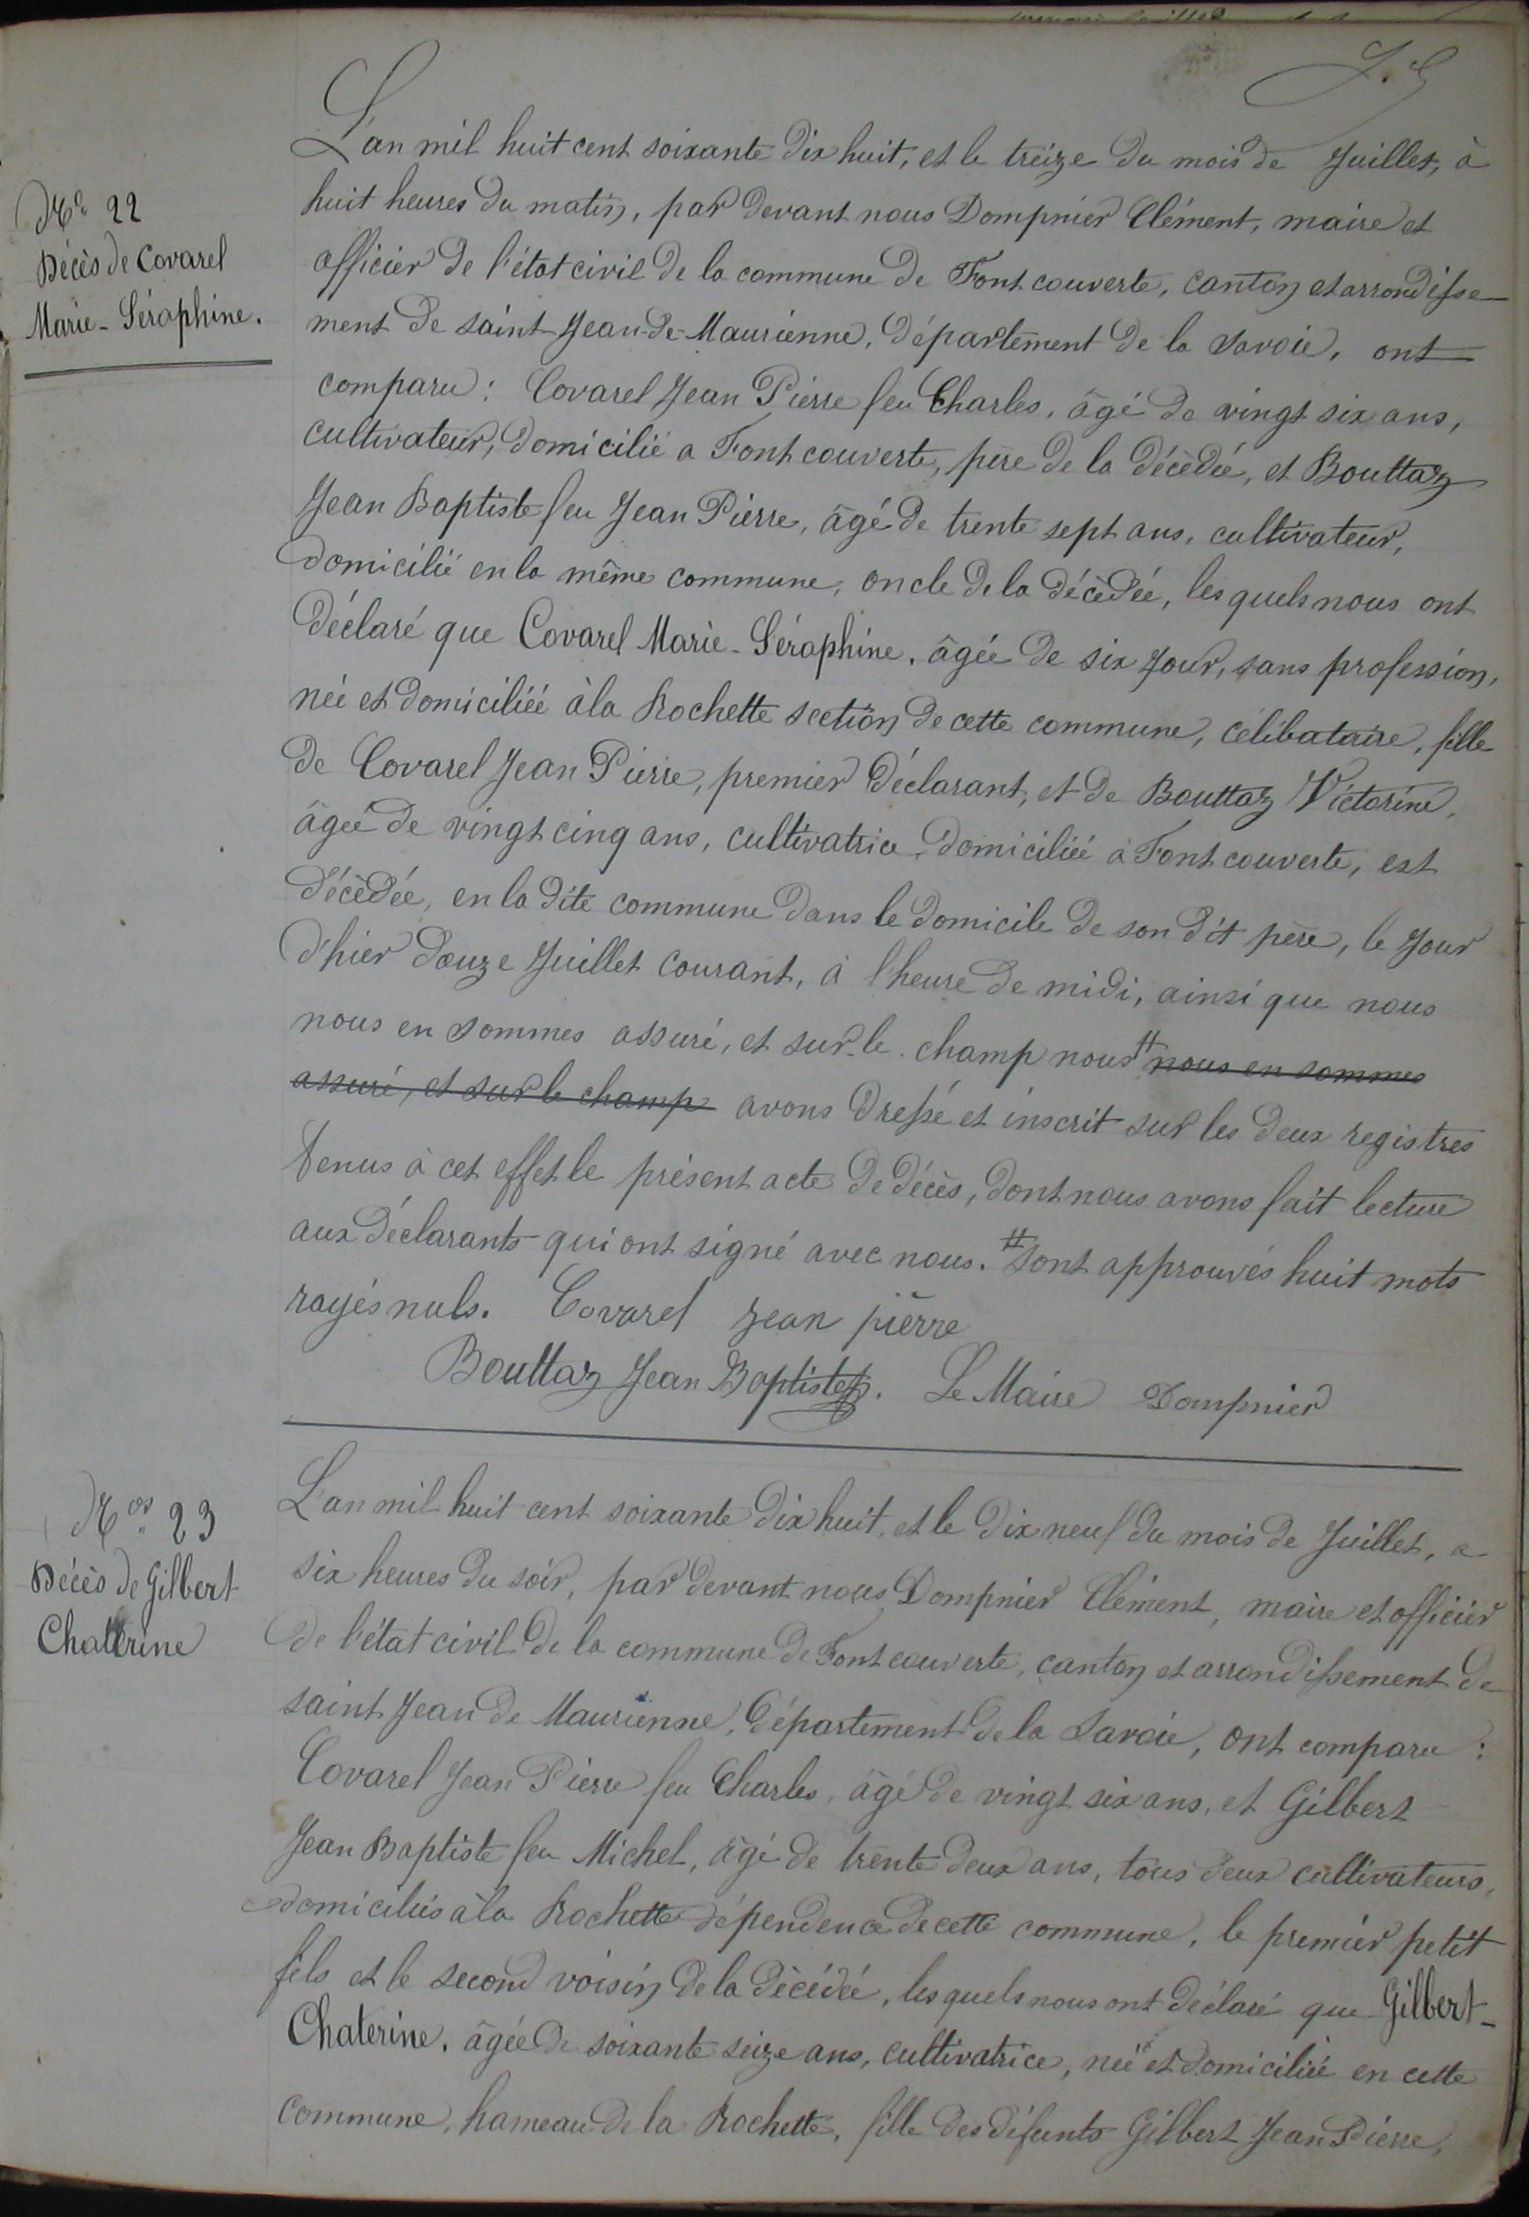 L'an mil huit cent soixante dix huit, et le treize du mois de Juillet, à
huit heures du matin, par devant nous Dompnier Clément, maire et
officier de l'état civil de la commune de Fontcouverte, canton et arrondisse-
ment de saint-Jean-de-Maurienne, département de la Savoie, ont
comparu : Covarel Jean Pierre feu Charles, âgé de vingt six ans,
cultivateur, domicilié a Fontcouverte, père de la décédée, et Bouttaz
Jean Baptiste feu Jean Pierre, âgé de trente sept ans, cultivateur,
domicilié en la même commune, oncle de la décédée, les quels nous ont
déclaré que Covarel Marie-Séraphine, âgée de six jour, sans profession,
née et domiciliée à la Rochette section de cette commune, célibataire, fille
de Covarel Jean Pierre, premier déclarant, et de Bouttaz Victorine,
âgée de vingt cinq ans, cultivatrice domiciliée à Fontcouverte, est
décédée, en la dite commune dans le domicile de son dit père, le jour
d'hier douze Juillet courant, à l'heure de midi, ainsi que nous
nous en sommes assuré, et sur-le-champ nous # nous en sommes
assuré, et sur le champ avons dressé et inscrit sur les deux registres
tenus à cet effet le présent acte de décès, dont nous avons fait lecture
aux déclarants qui ont signé avec nous. # Sont approuvés huit mots
rayés nuls. Covarel jean pièrre
Bouttaz Jean Baptiste. Le Maire Dompnier
N° 22
Décès de Covarel
Marie-Séraphine.
L'an mil huit cent soixante dix huit, et le dix neuf du mois de Juillet, a
six heures du soir, par devant nous Dompnier Clément, maire et officier
de l'état civil de la commune de Fontcouverte, canton et arrondissement de
saint Jean de Maurienne, département de la Savoie, ont comparu :
Covarel Jean Pierre feu Charles, âgé de vingt six ans, et Gilbert
Jean Baptiste feu Michel, âgé de trente deux ans, tous deux cultivateurs,
domiciliés à la Rochette dépendence de cette commune, le premier petit
fils et le second voisin de la décédée, les quels nous ont déclaré que Gilbert-
Chaterine, âgée de soixante seize ans, cultivatrice, née et domiciliée en cette
commune, hameau de la Rochette, fille des défunts Gilbert Jean Pierre,
Nos 23
Décès de Gilbert
Chaterine